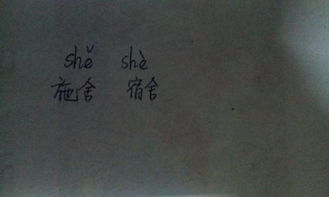 shě shè
施舍 宿舍